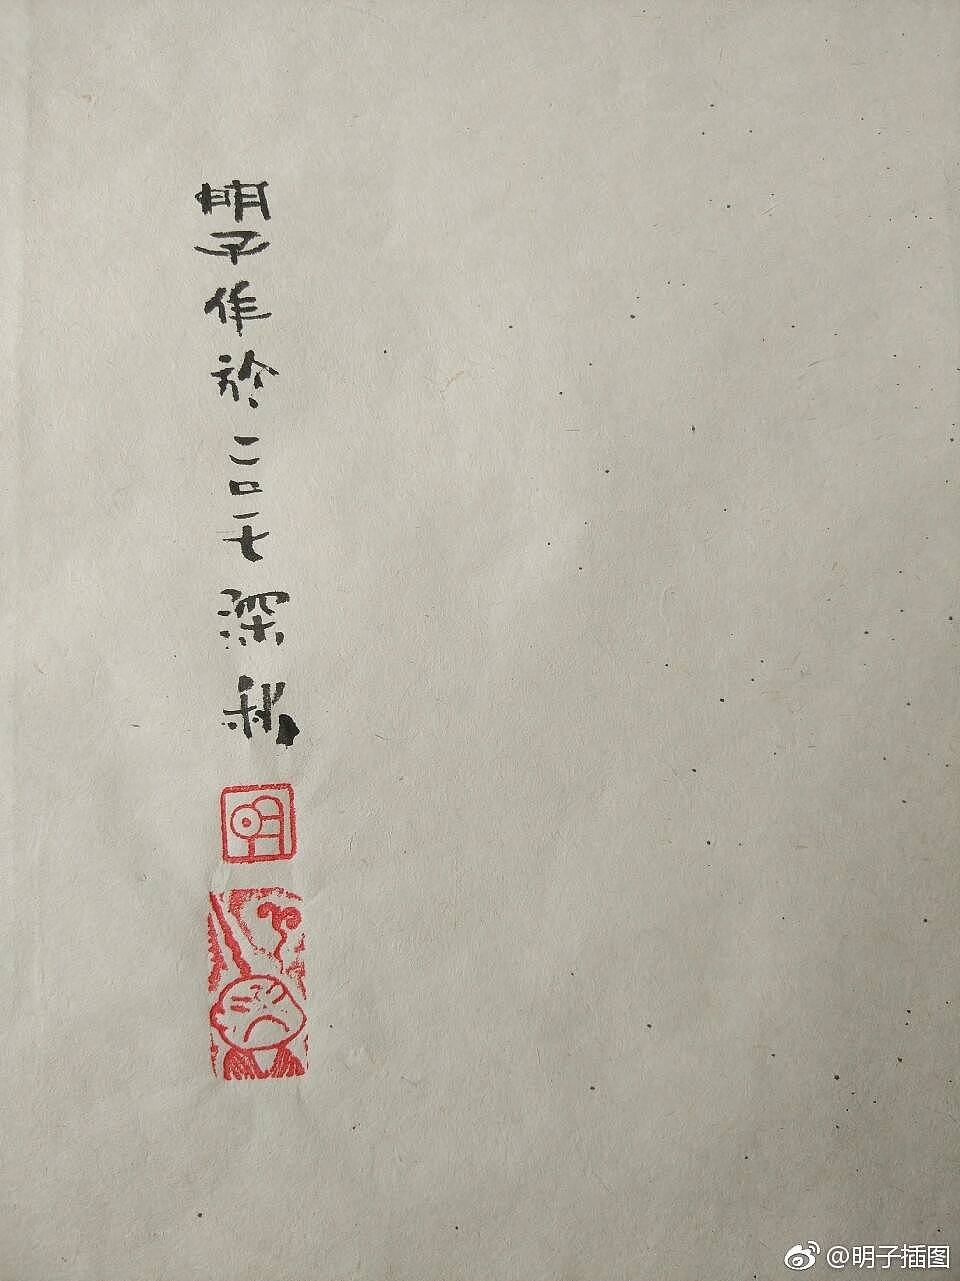 明子作於二〇一七深秋
明
@明子插图